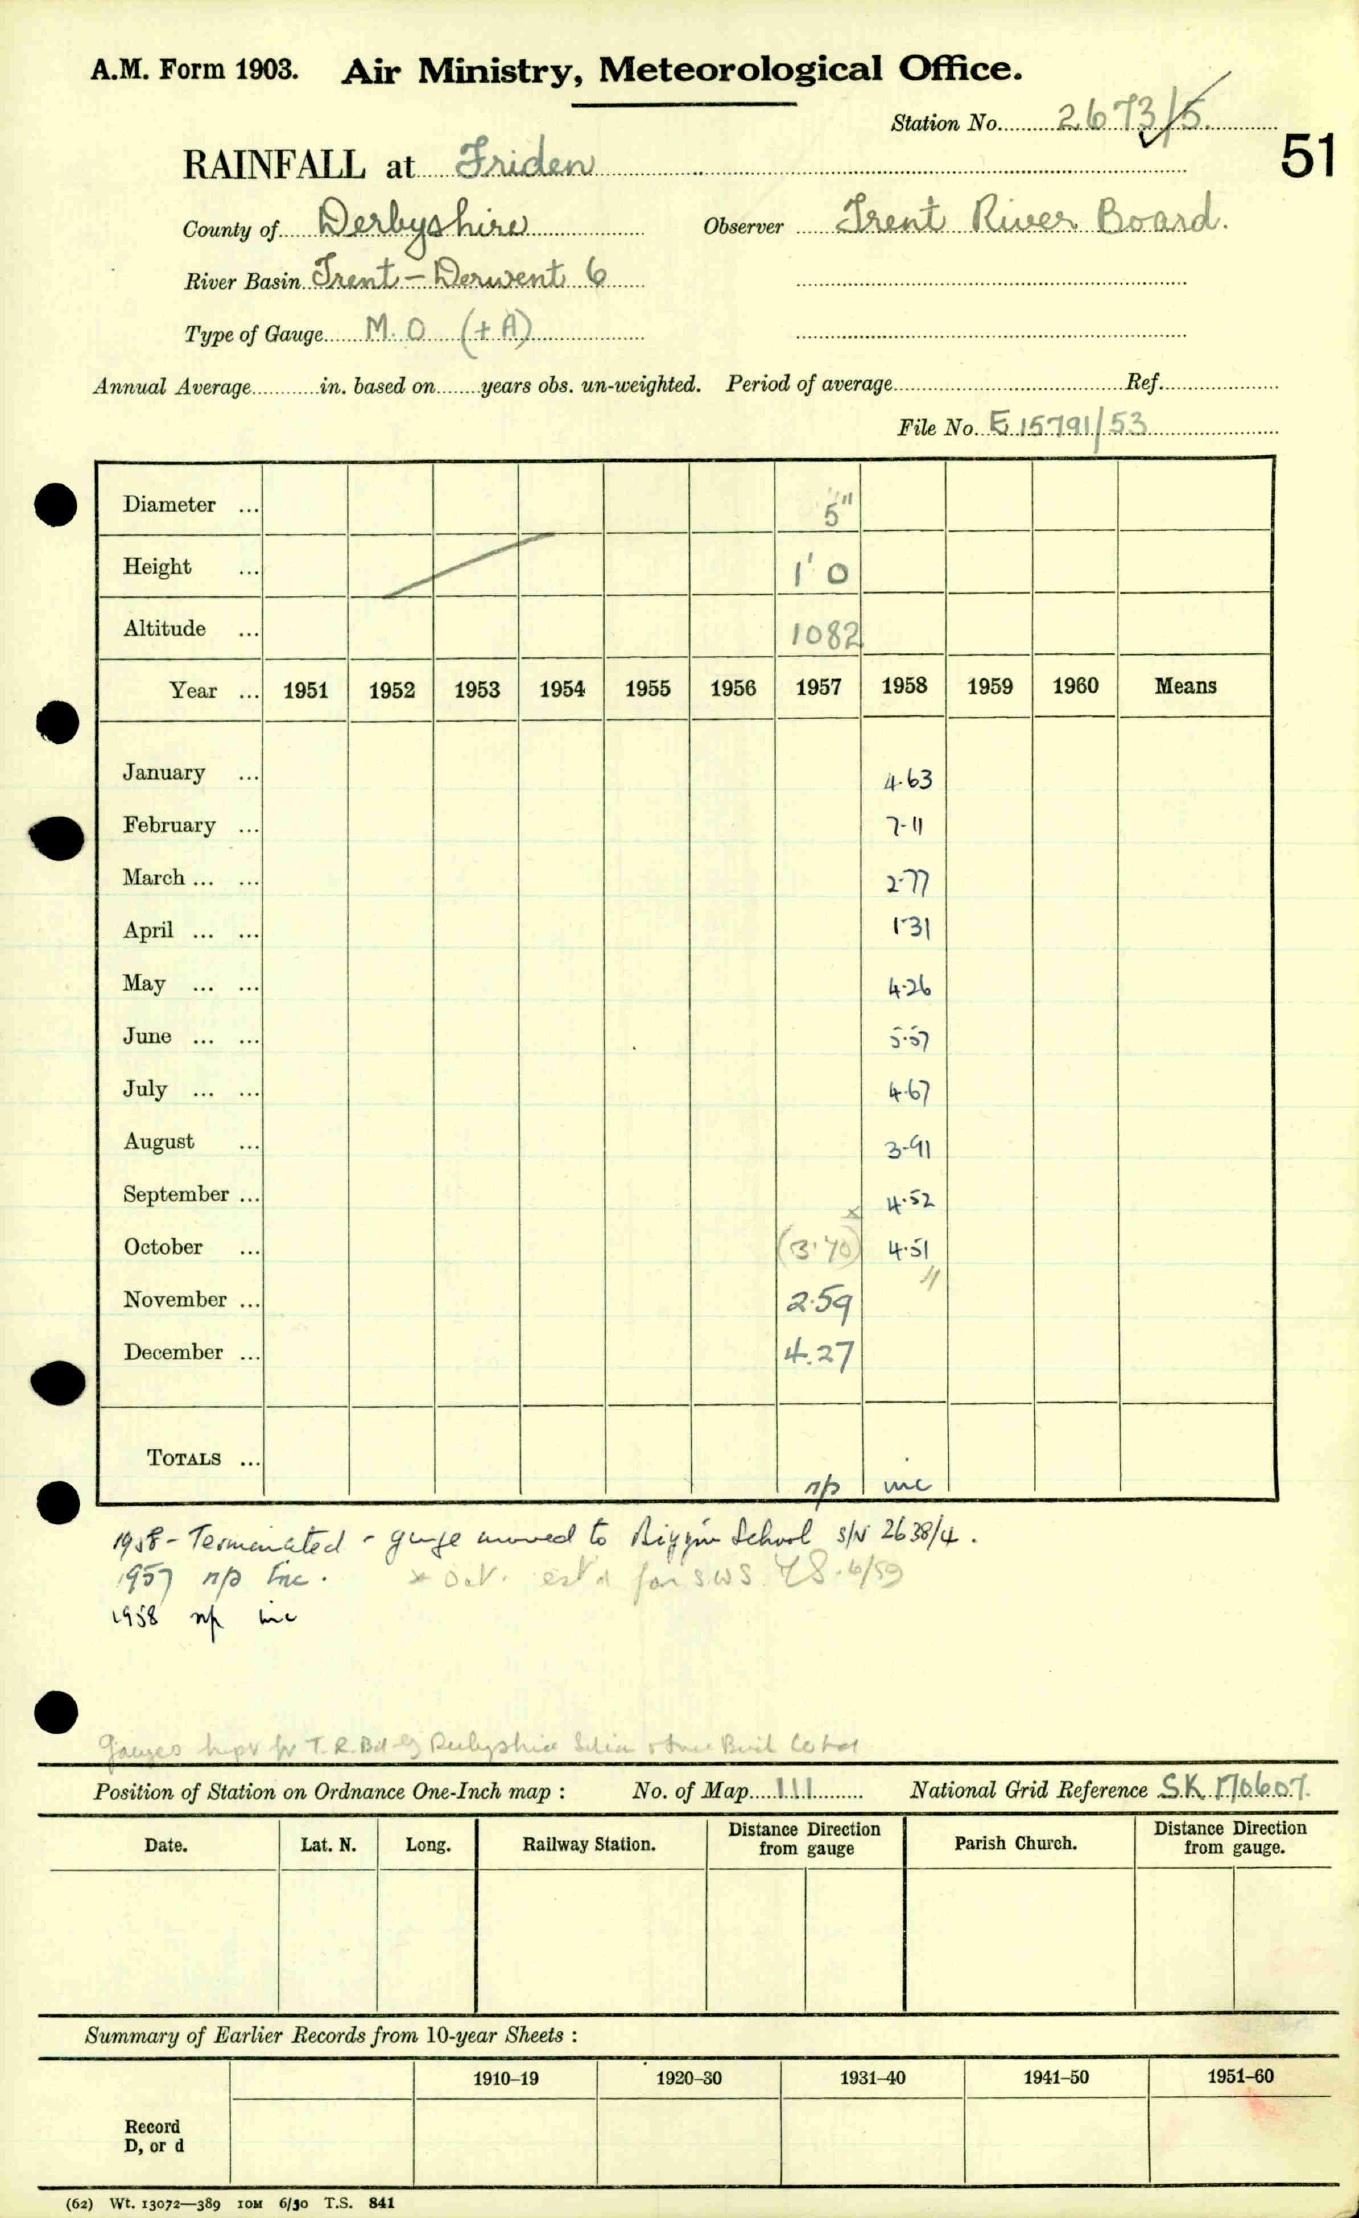 A.M. Form 1903. Air Ministry, Meteorological Office.
Station No. 2673/5.
51
RAINFALL at Friden
County of Derbyshire Observer Trent River Board.
River Basin Trent - Derwent 6
Type of Gauge M.O (+A)
Annual Average in. based on years obs. un-weighted. Period of average Ref.
File No. E15791/53
Diameter ... 5"
Height ... 1' 0
Altitude ... 1082
Year ... 1951 1952 1953 1954 1955 1956 1957 1958 1959 1960 Means
January ... 4.63
February ... 7.11
March ... ... 2.77
April ... ... 1.31
May ... ... 4.26
June ... ... 5.57
July ... ... 4.67
August ... 3.91
September ... 4.52
October ... (3.70) x 4.51
November ... 2.59 "
December ... 4.27
TOTALS ... n/p inc
1958 - Terminated - gauge moved to Biggin School S/N 2638/4.
1957 n/p Inc. x Oct. est'd for SWS 6/59
1958 np inc
Gauges kept for T.R.Bd by Derbyshire
Position of Station on Ordnance One-Inch map : No. of Map 111 National Grid Reference SK 170607.
Date. Lat. N. Long. Railway Station. Distance from Direction gauge Parish Church. Distance from Direction gauge.
Summary of Earlier Records from 10-year Sheets :
1910–19 1920–30 1931–40 1941–50 1951–60
Record
D, or d
(62) Wt. 13072—389 10M 6/50 T.S. 841